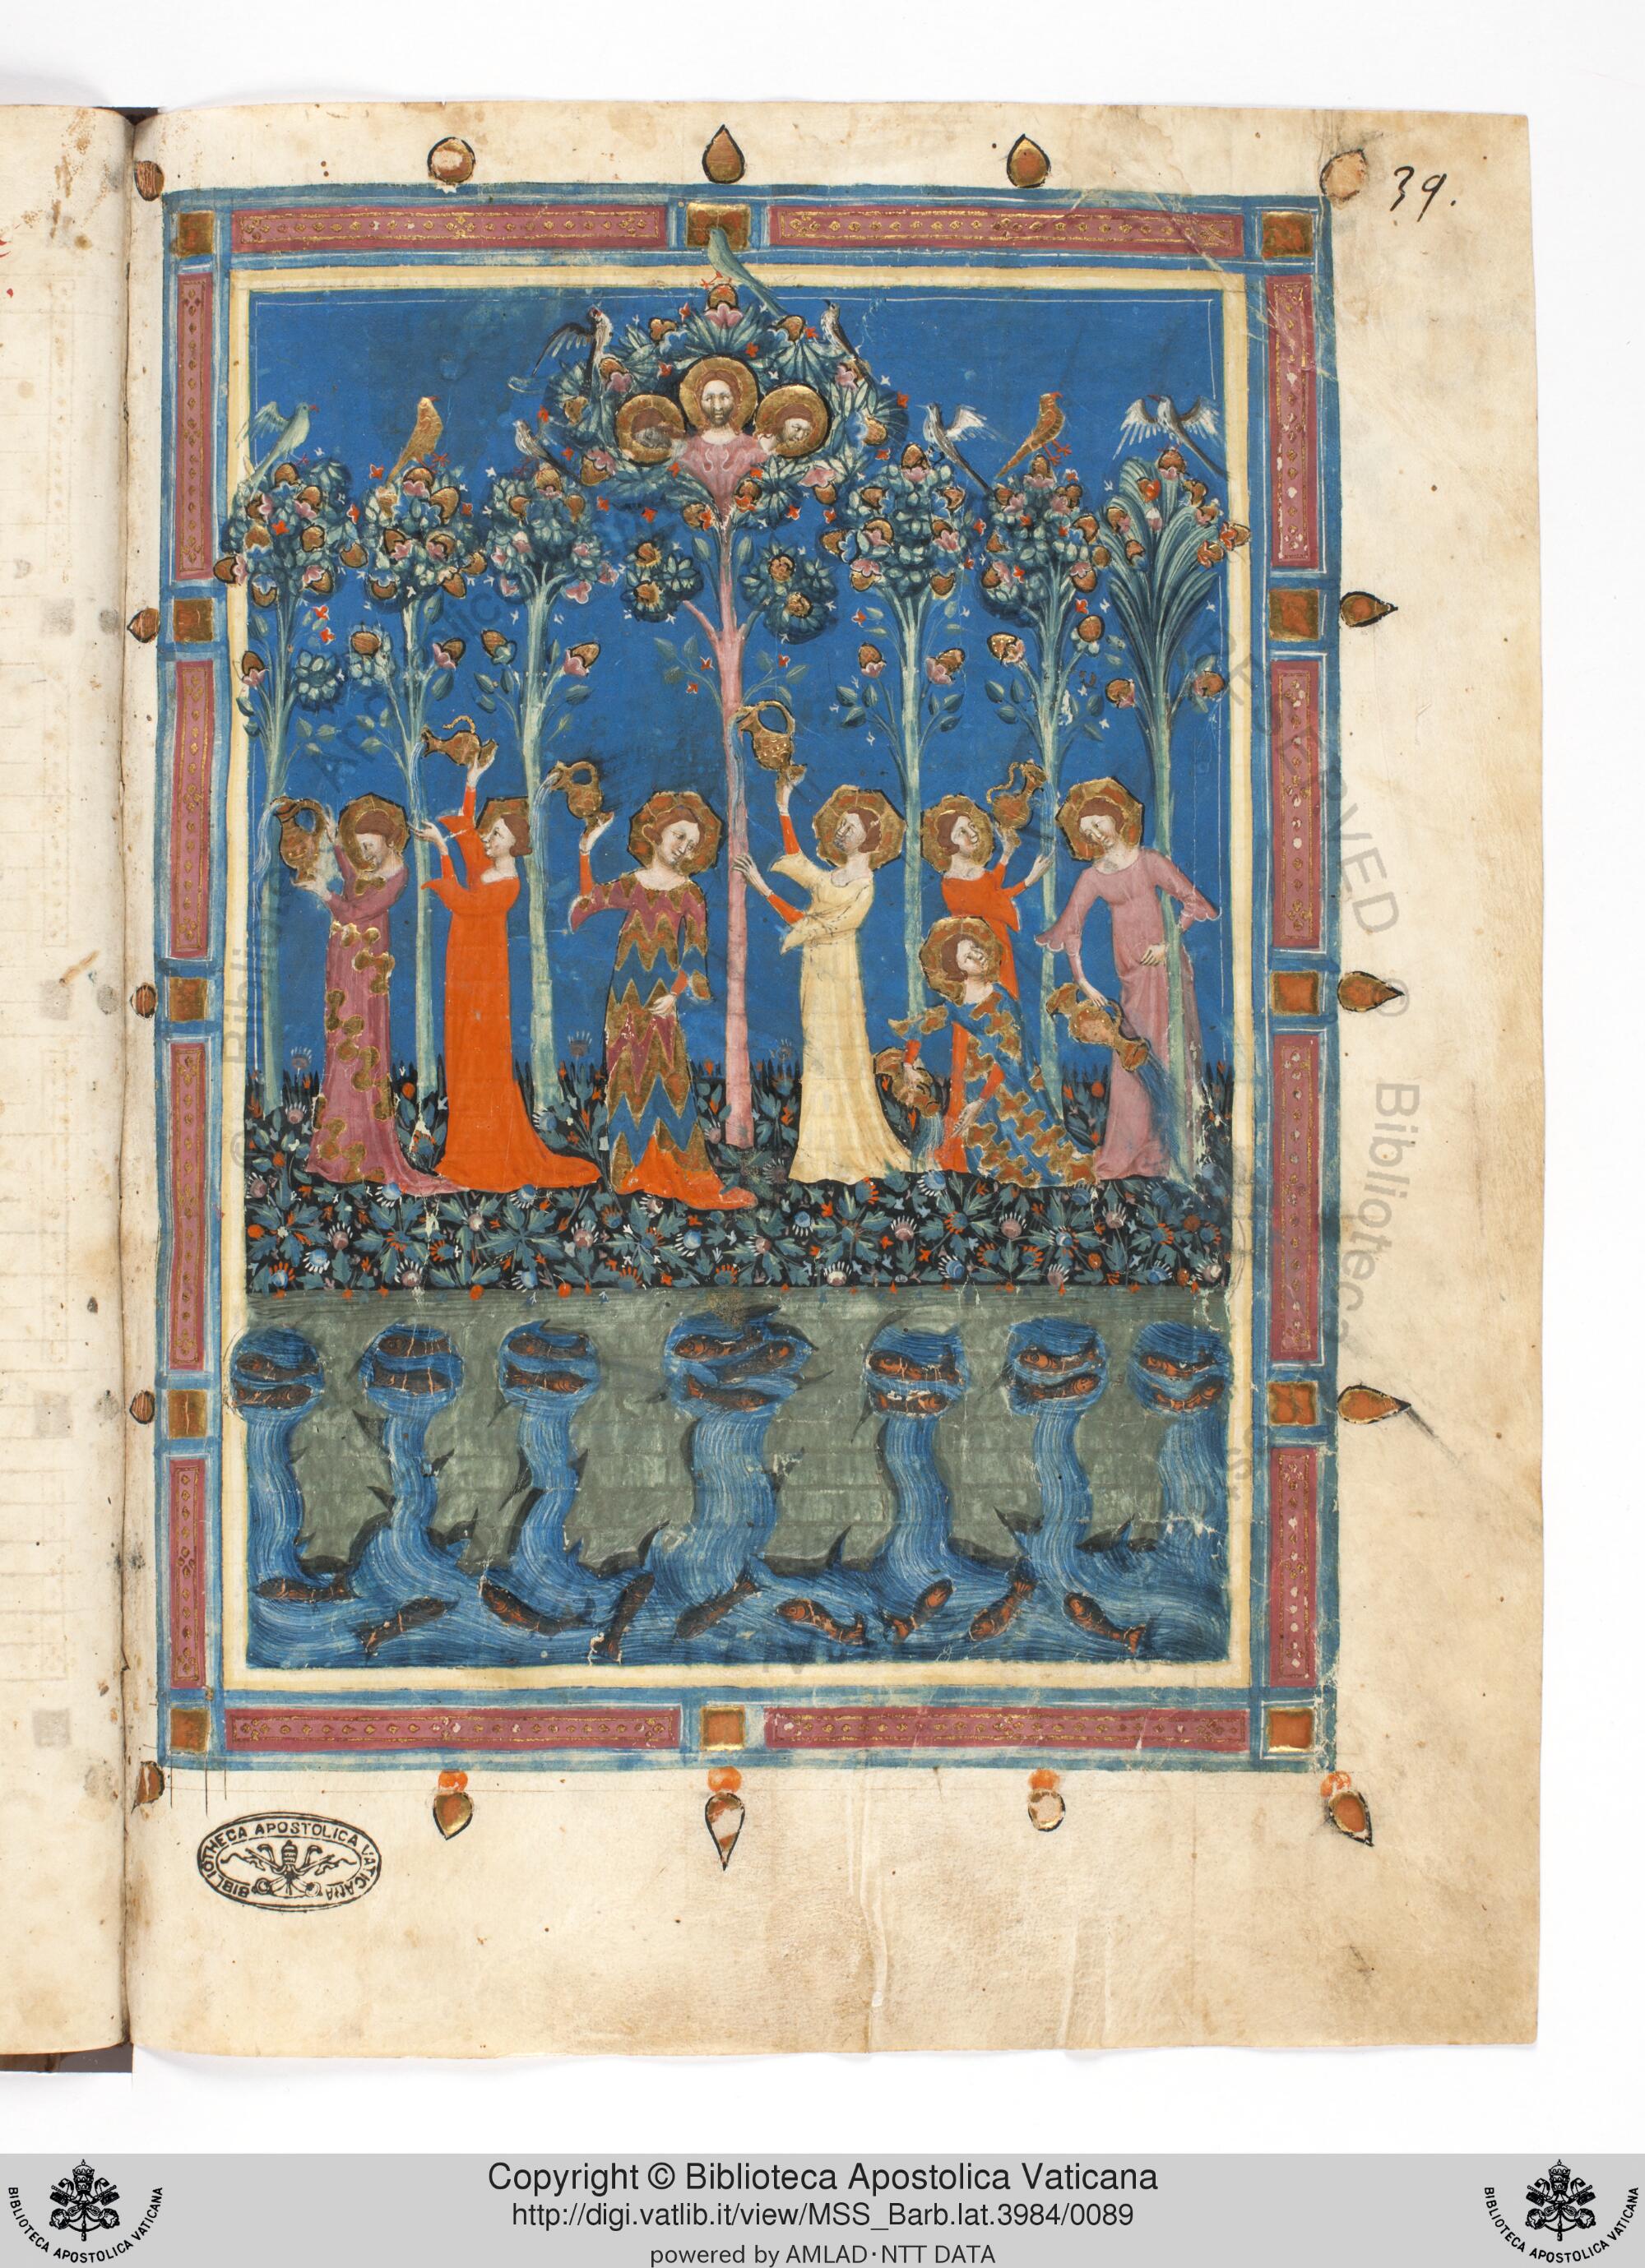 39.
BIBLIOTHECA APOSTOLICA VATICANA
© Biblioteca Apostolica
RESERVED © Biblioteca
Copyright © Biblioteca Apostolica Vaticana
http://digi.vatlib.it/view/MSS_Barb.lat.3984/0089
powered by AMLAD·NTT DATA
BIBLIOTECA APOSTOLICA VATICANA
BIBLIOTECA APOSTOLICA VATICANA